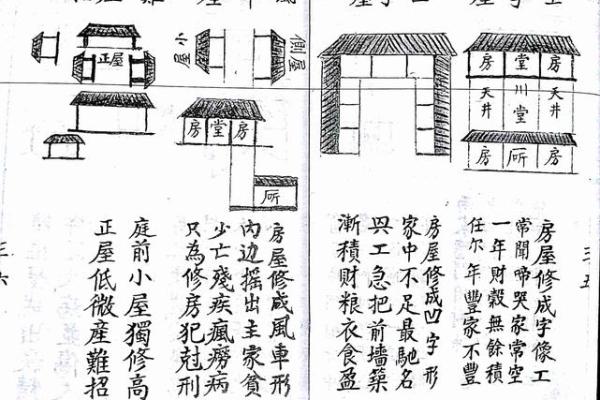 房 堂 房
天井 川堂 天井
房 所 房
房屋修成字像工
常聞啼哭家常空
一年財穀無餘積
任尔年豐家不豐
房屋修成凹字形
家中不足最馳名
興工急把前墻築
漸積財粮衣食盈
三五
側屋
小屋
正屋
房堂房
所
房屋修成風車形
內边摇出主家貧
少亡殘疾瘋癆病
只為修房犯尅刑
庭前小屋獨修高
正屋低微産難招
三六